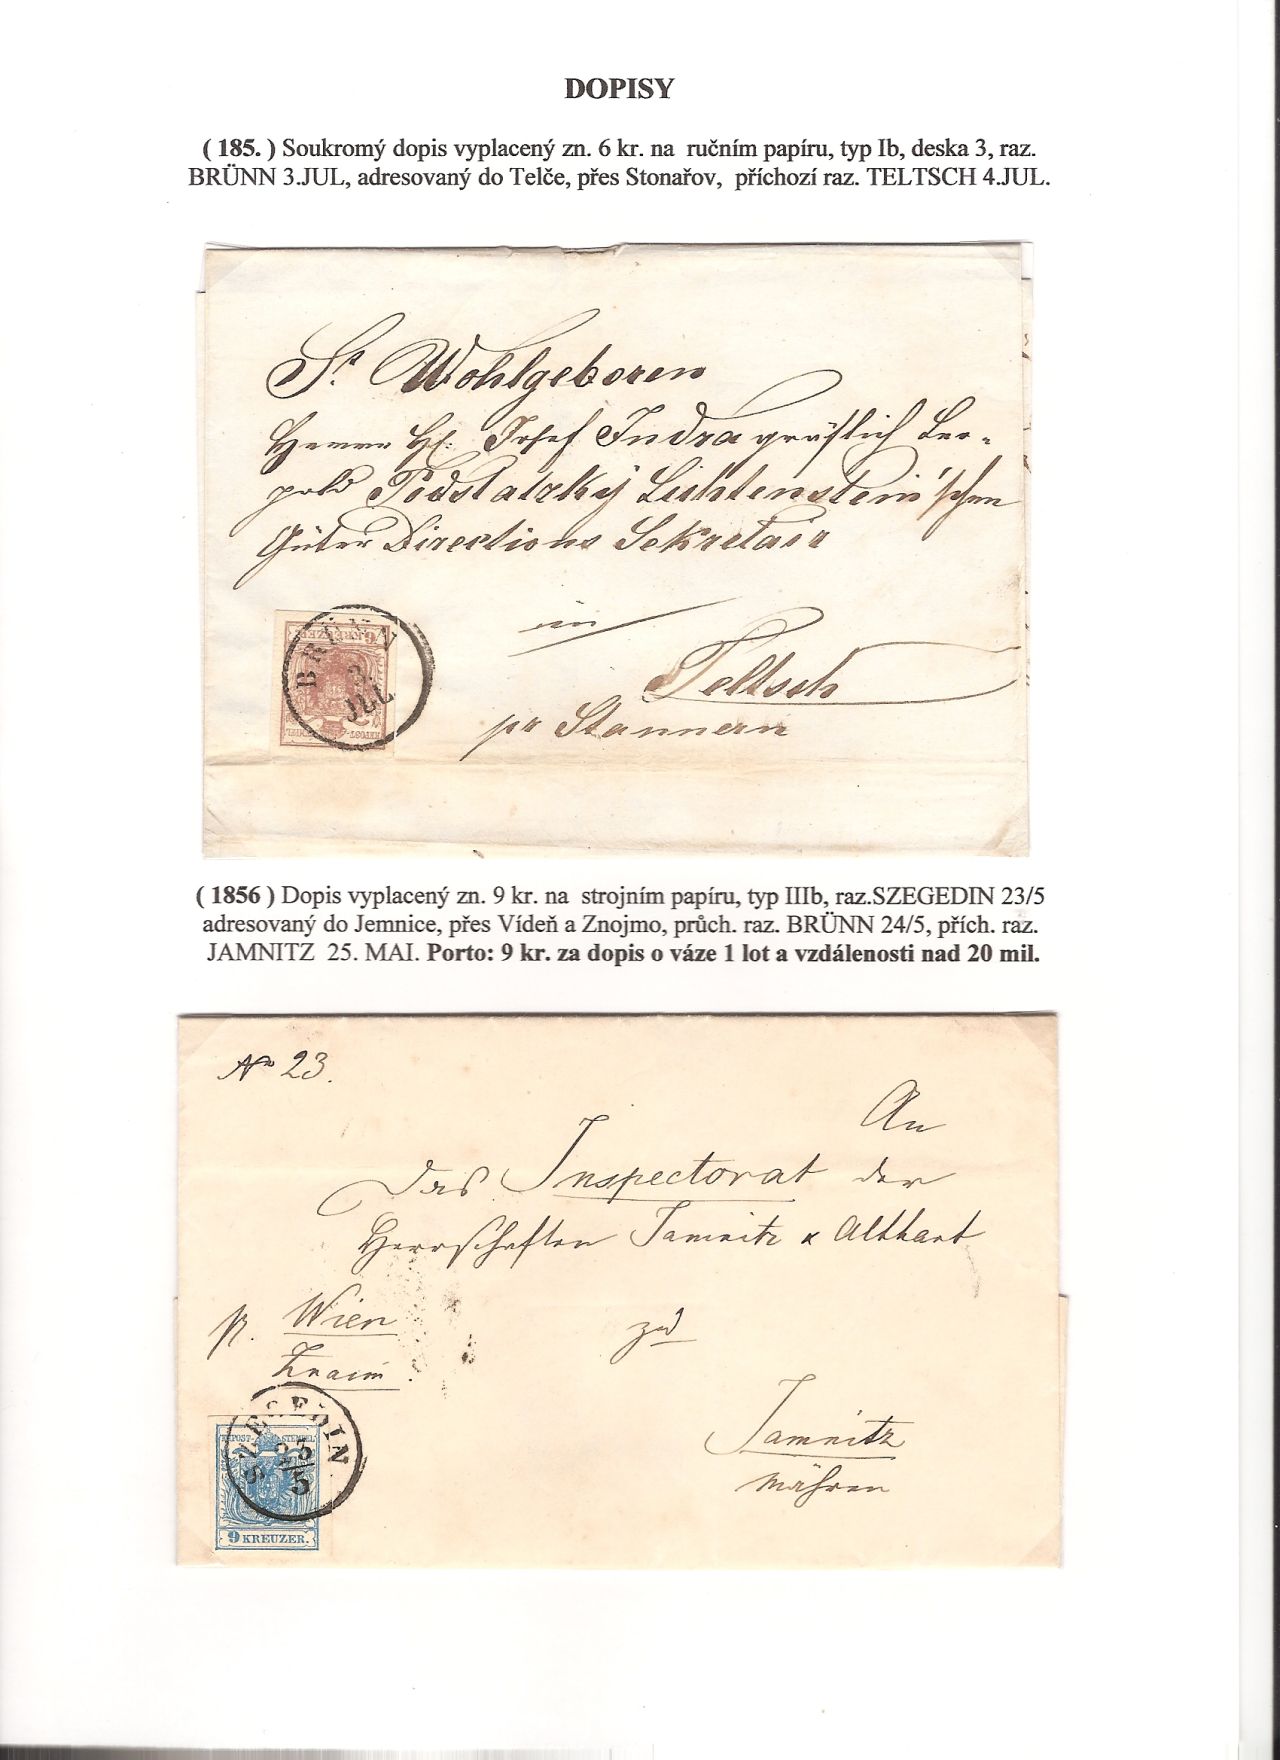 DOPISY
( 185. ) Soukromý dopis vyplacený zn. 6 kr. na ručním papíru, typ Ib, deska 3, raz.
BRÜNN 3.JUL, adresovaný do Telče, přes Stonařov, příchozí raz. TELTSCH 4.JUL.
Sr. Wohlgeboren
Herrn H. Josef Indra gräflich Leo-
pold Podstatzky Lichtenstein'schen
Güter Directions Sekretair
in
Teltsch
pr Stannern
6 KREUZER
BRÜNN
3.
JUL
( 1856 ) Dopis vyplacený zn. 9 kr. na strojním papíru, typ IIIb, raz.SZEGEDIN 23/5
adresovaný do Jemnice, přes Vídeň a Znojmo, průch. raz. BRÜNN 24/5, přích. raz.
JAMNITZ 25. MAI. Porto: 9 kr. za dopis o váze 1 lot a vzdálenosti nad 20 mil.
No 23.
An
das Inspectorat der
Herrschaften Jamnitz & Althart
pr. Wien
Znaim
zu
Jamnitz
Mähren
SZEGEDIN
23/5
KKPOST-STEMPEL
9 KREUZER.